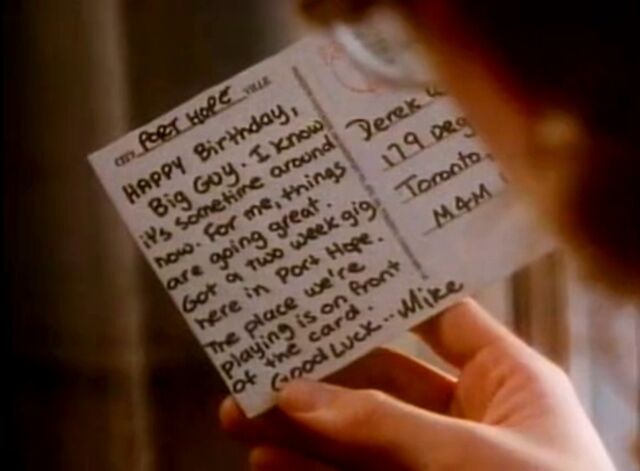 CITY PORT HOPE VILLE
HAPPY Birthday,
Big Guy. I know
it's sometime around
now. For me, things
are going great.
Got a two week gig
here in Port Hope.
The place we're
playing is on front
of the card.
Good Luck.. Mike
Derek
179 Deg
Toronto
M4M